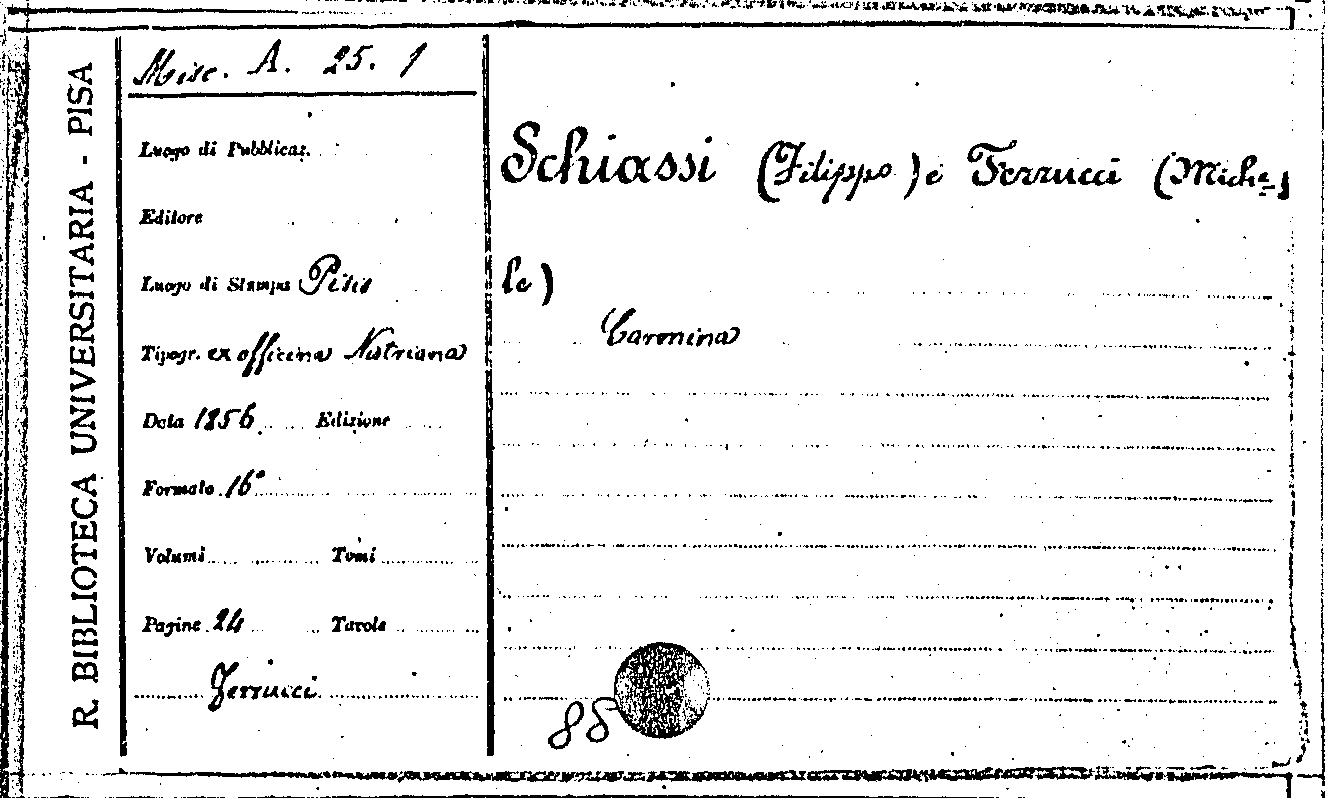 R. BIBLIOTECA UNIVERSITARIA - PISA
Misc. A. 25. 1
Luogo di Pubblicaz.
Editore
Luogo di Stampa Pisis
Tipogr. ex officina Nistriana
Data 1856 Edizione
Formato 16°
Volumi Tomi
Pagine 24 Tavole
Ferrucci
Schiassi (Filippo) e Ferrucci (Miche-
le)
Carmina
88